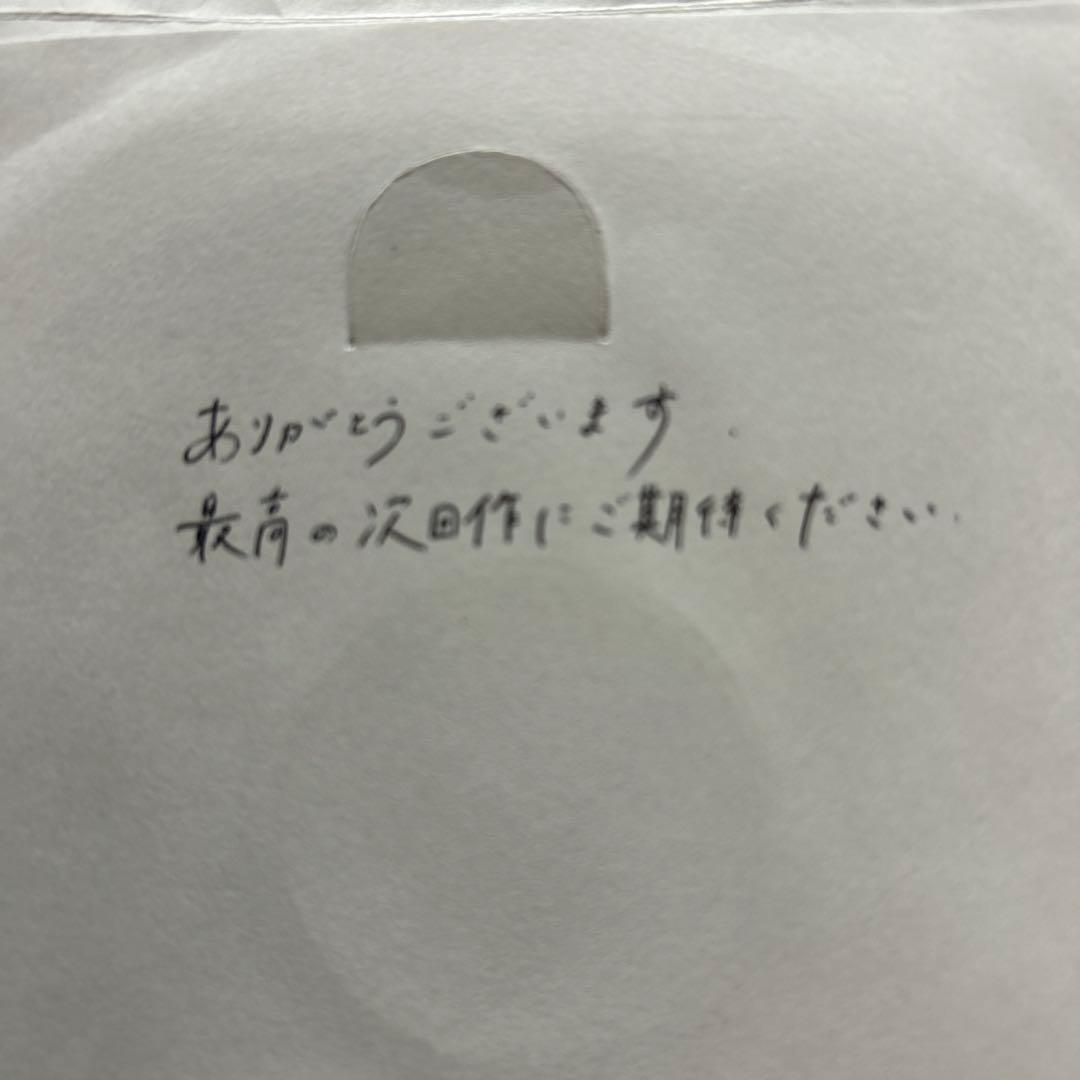 ありがとうございます.
最高の次回作にご期待ください.